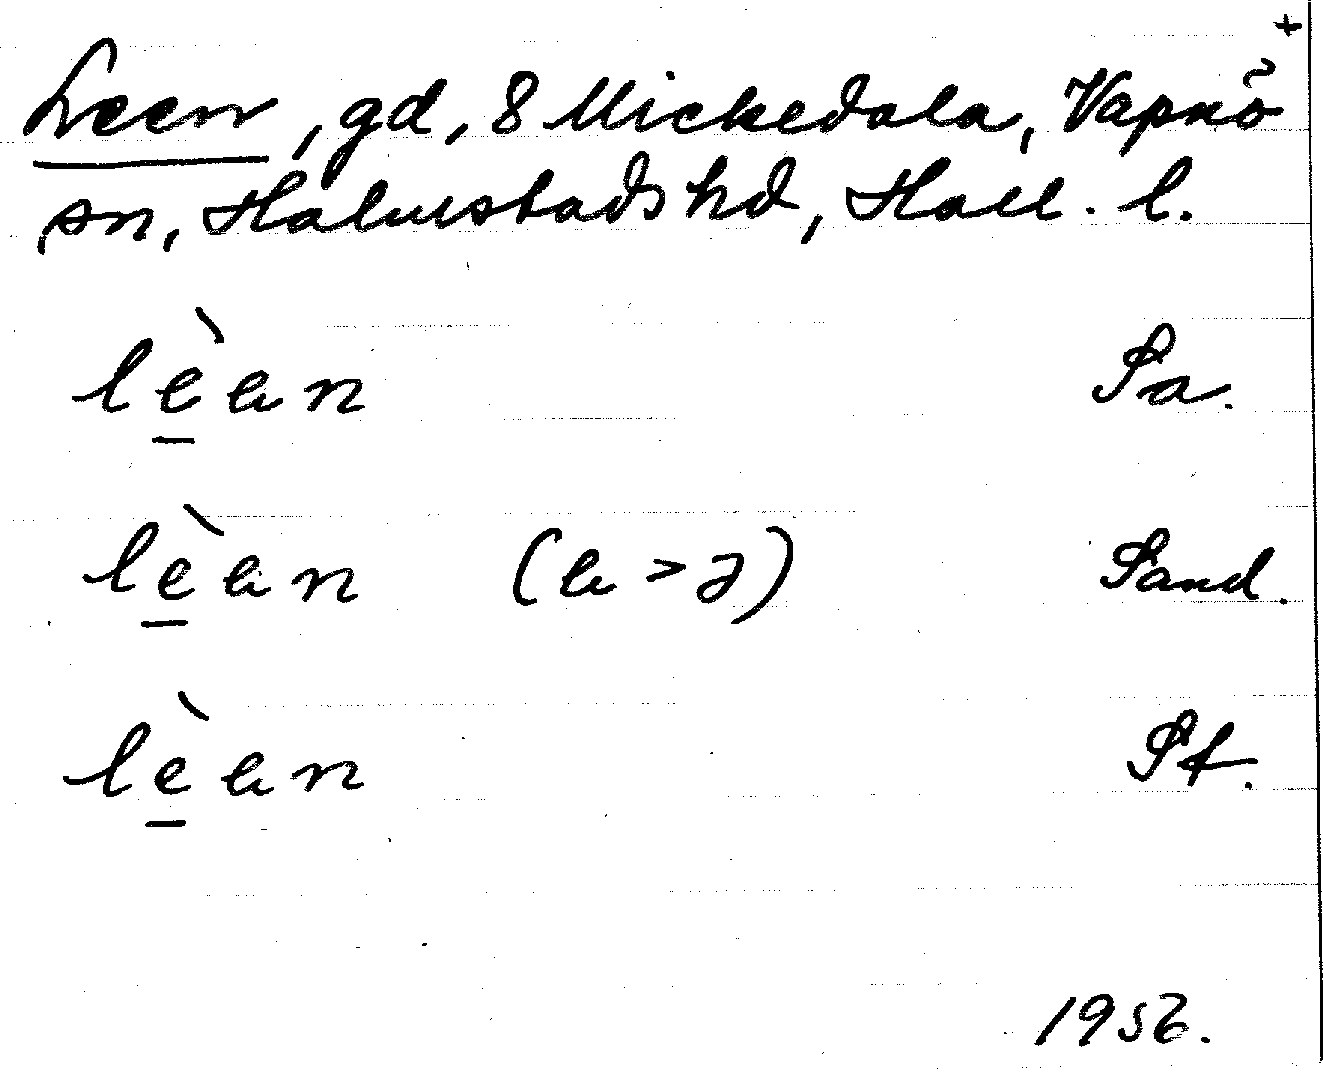 +
Leen, gd, 8 Mickedala, Vapnö
sn, Halmstads hd, Hall. l.
lèen Sa.
lèen (e > ə) Sand.
lèen Sf.
1956.